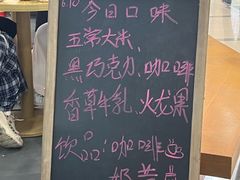 6.10
今日口味
五常大米、
黑巧克力、咖啡
香草牛乳、火龙果
饮品：咖啡
奶昔